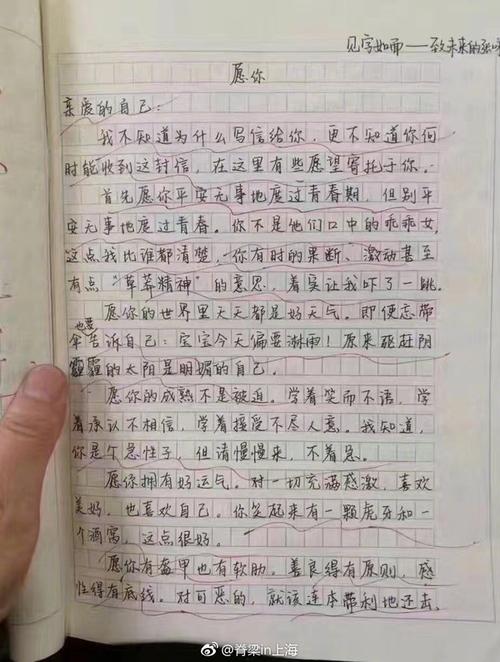 见字如面——致未来的张
愿你
亲爱的自己:
我不知道为什么写信给你,更不知道你何
时能收到这封信,在这里有些愿望寄托于你。
首先愿你平安无事地度过青春期,但别平
安无事地度过青春。你不是他们口中的乖乖女,
这点我比谁都清楚,你有时的果断、激动甚至
有点“草莽精神”的意见,着实让我吓了一跳。
愿你的世界里天天都是好天气。即使忘带
伞也要告诉自己:宝宝今天偏要淋雨!原来驱赶阴
霾的太阳是明媚的自己。
愿你的成熟不是被迫。学着笑而不语,学
着承认不相信,学着接受不尽人意。我知道,
你是个急性子,但请慢慢来,不着急。
愿你拥有好运气。对一切充满感激,喜欢
美好,也喜欢自己。你笑起来有一颗虎牙和一
个酒窝,这点很好。
愿你有盔甲也有软肋。善良得有原则,感
性得有底线。对可恶的,就该连本带利地还击。
@脊梁in上海